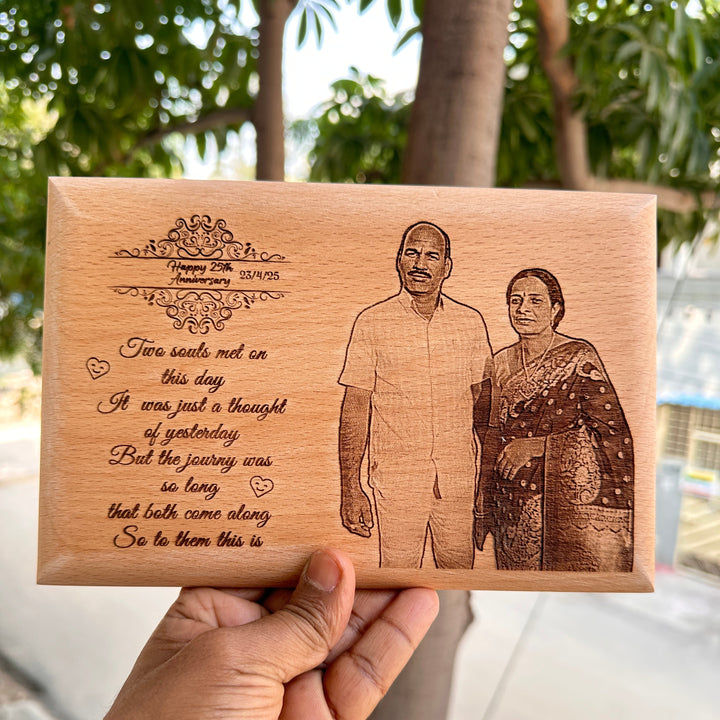 Happy 25th
Anniversary
23/4/25
Two souls met on
this day
It was just a thought
of yesterday
But the journy was
so long
that both come along
So to them this is